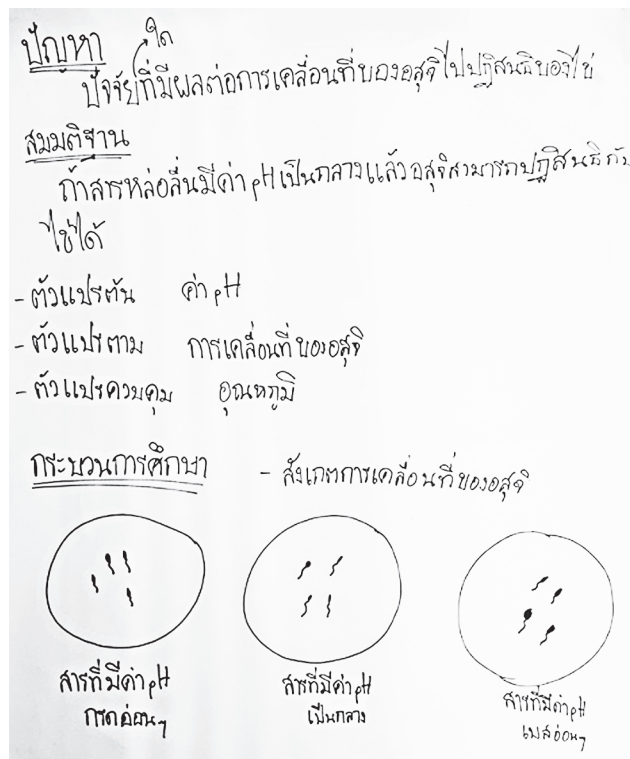 ปัญหา
ใด
ปัจจัยที่มีผลต่อการเคลื่อนที่ของอสุจิไปปฏิสนธิของไข่
สมมติฐาน
ถ้าสารหล่อลื่นมีค่า pH เป็นกลางแล้วอสุจิสามารถปฏิสนธิกับ
ไข่ได้
- ตัวแปรต้น ค่า pH
- ตัวแปรตาม การเคลื่อนที่ของอสุจิ
- ตัวแปรควบคุม อุณหภูมิ
กระบวนการศึกษา - สังเกตการเคลื่อนที่ของอสุจิ
สารที่มีค่า pH
กรดอ่อนๆ
สารที่มีค่า pH
เป็นกลาง
สารที่มีค่า pH
เบสอ่อนๆ